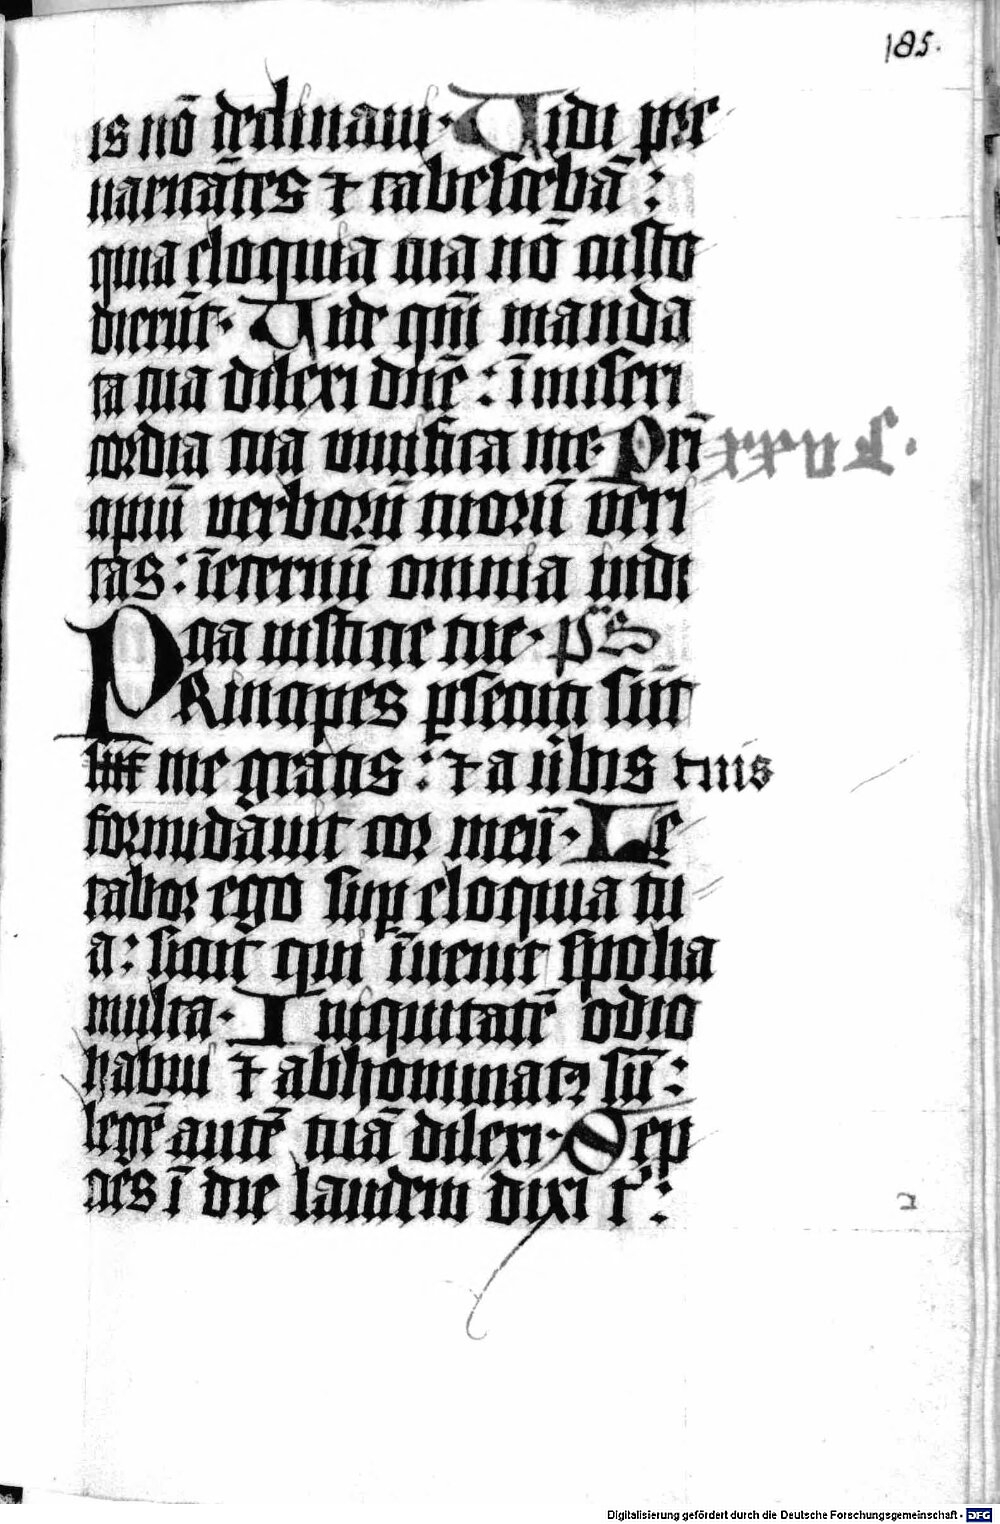 185.
is nō declinaui. Uidi pre
uaricātes ⁊ tabescebā :
quia eloquia tua nō custo
dierūt. Uide qm̄ manda
ta tua dilexi dn̄e : ī miseri
cordia tua uiuifica me. Prī
cipiū verborū tuorū veri
tas : ī eternū omnia iudi
cia iusticie tue. ps
PRincipes ꝑsecuti sūt
me gratis : ⁊ a ūbis tuis
formidauit cor meū. Le
tabor ego suꝑ eloquia tu
a : sicut qui īuenit spolia
multa. Iniquitatē odio
habui ⁊ abhominatꝰ sū :
legē autē tuā dilexi. Sep
cies ī die laudem dixi t' :
Digitalisierung gefördert durch die Deutsche Forschungsgemeinschaft - DFG